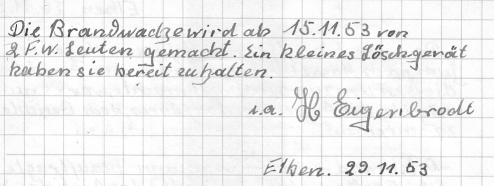 Die Brandwache wird ab 15.11.53 von
2 F.W. Leuten gemacht. Ein kleines Löschgerät
haben sie bereit zu halten.
i.a. H Eigenbrodt
Elben. 29.11.53